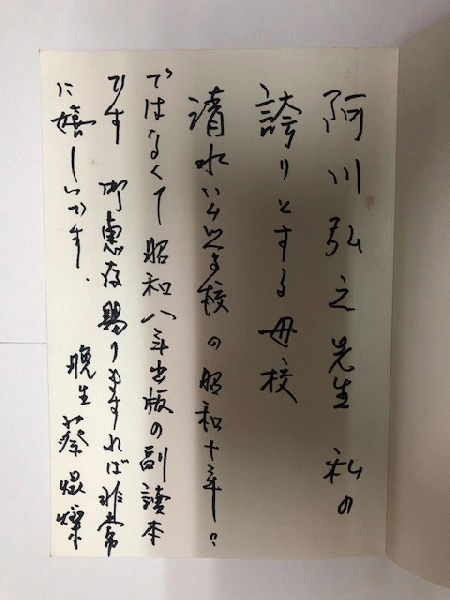 阿川弘之先生 私の
誇りとする母校
清水公学校の昭和十年
ではなくて昭和八年出版の副讀本
です 御惠存賜りますれば非常
に嬉しいです.
晩生 蔡焜燦